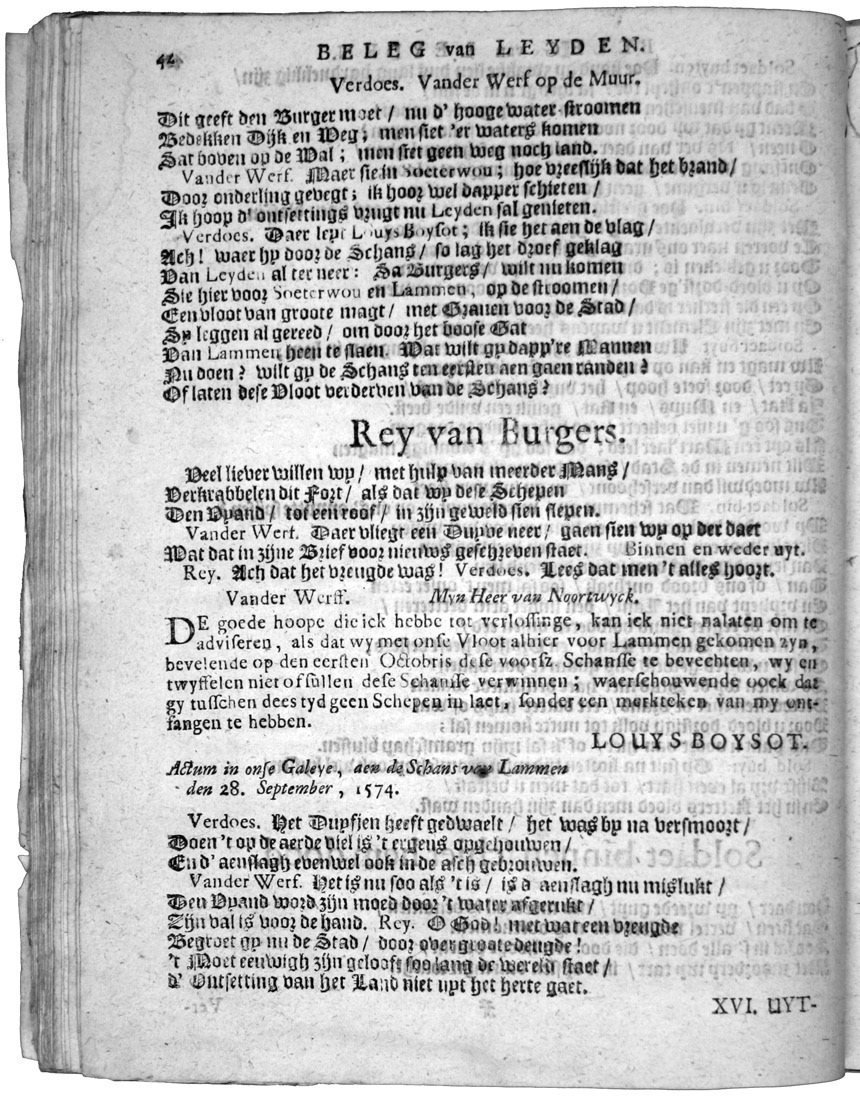 42 BELEG van LEYDEN.
Verdoes. Vander Werf op de Muur.
Dit geeft den Burger moet / nu d' hooge water-stroomen
Bedekken Dijk en Weg; men siet 'er waters komen
Sat boven op de Wal; men siet geen weg noch land.
Vander Werf. Maer sie in Soeterwou; hoe vreeslijk dat het brand /
Door onderling gevegt; ik hoor wel dapper schieten /
Ik hoop d' ontsettings vrugt nu Leyden sal genieten.
Verdoes. Daer leyt Louys Boysot; ik sie het aen de vlag /
Ach! waer hy door de Schans / so lag het droef geklag
Van Leyden al ter neer: Sa Burgers / wilt nu komen
Sie hier voor Soeterwou en Lammen, op de stroomen /
Een vloot van groote magt / met Graven voor de Stad /
Sy leggen al gereed / om door het boose Gat
Van Lammen heen te slaen. Wat wilt gy dapp're Mannen
Nu doen? wilt gy de Schans ten eersten aen gaen randen?
Of laten dese Vloot verderven van de Schans?
Rey van Burgers.
Veel liever willen wy / met hulp van meerder Mans /
Verkrabbelen dit Fort / als dat wy dese Schepen
Den Vyand / tot een roof / in zijn geweld sien slepen.
Vander Werf. Daer vliegt een Duyve neer / gaen sien wy op der daet
Wat dat in zijne Brief voor nieuws geschreven staet. Binnen en weder uyt.
Rey. Ach dat het vreugde was! Verdoes. Lees dat men 't alles hoort.
Vander Werff. Myn Heer van Noortwyck.
DE goede hoope die ick hebbe tot verlossinge, kan ick niet nalaten om te
adviseren, als dat wy met onse Vloot alhier voor Lammen gekomen zyn,
bevelende op den eersten Octobris dese voorsz. Schansse te bevechten, wy en
twyffelen niet of sullen dese Schansse verwinnen; waerschouwende oock dat
gy tusschen dees tyd geen Schepen in laet, sonder een merkteken van my ont-
fangen te hebben.
LOUYS BOYSOT.
Actum in onse Galeye, aen de Schans van Lammen
den 28. September, 1574.
Verdoes. Het Duyfjen heeft gedwaelt / het was by na versmoort /
Doen 't op de aerde viel is 't ergens opgehouwen /
En d' aenslagh evenwel ook in de asch gebrouwen.
Vander Werf. Het is nu soo als 't is / is d' aenslagh nu mislukt /
Den Vyand word zijn moed door 't water afgerukt /
Zijn val is voor de hand. Rey. O God! met wat een vreugde
Begroet gy nu de Stad / door overgroote deugde!
't Moet eeuwigh zijn gelooft soo lang de wereld staet /
d' Ontsetting van het Land niet uyt het herte gaet.
XVI. UYT-